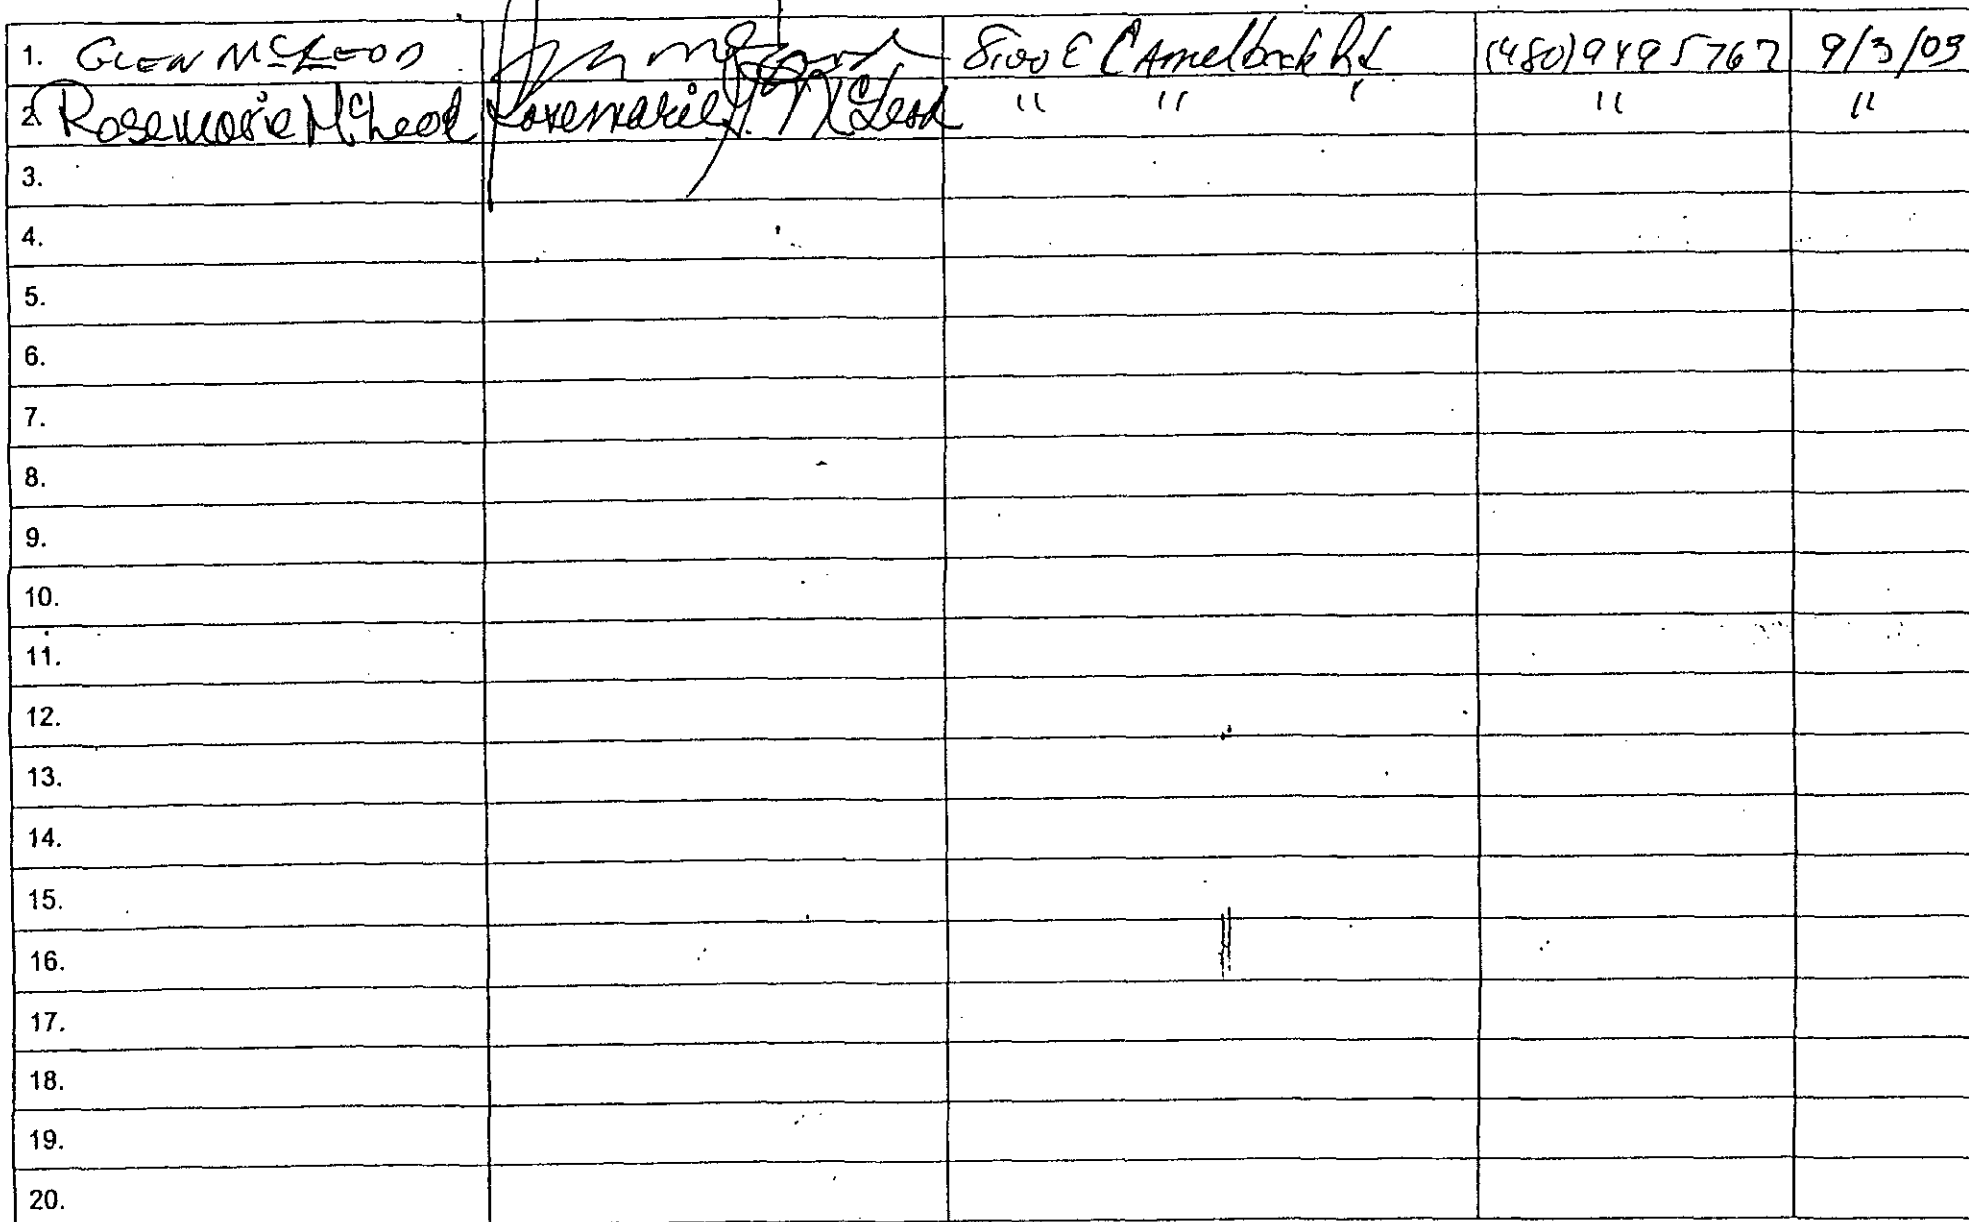 1. GLEN McLEOD 8100 E CAmelback Rd (480) 949 5767 9/3/09
2. Rosemarie McLeod Rosemarie J. McLeod " " " " "
3.
4.
5.
6.
7.
8.
9.
10.
11.
12.
13.
14.
15.
16.
17.
18.
19.
20.